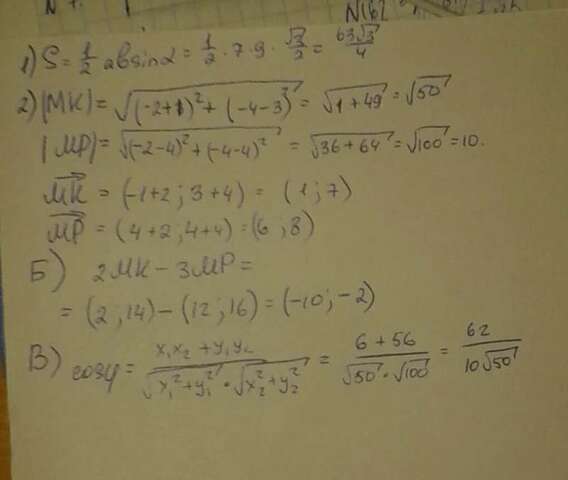 N162
1) S = 1/2 ab sinα = 1/2 · 7 · 9 · √3/2 = 63√3/4
2) |MK| = √((-2+1)² + (-4-3)²) = √(1+49) = √50
|MP| = √((-2-4)² + (-4-4)²) = √(36+64) = √100 = 10.
MK = (-1+2; 3+4) = (1; 7)
MP = (4+2; 4+4) = (6; 8)
Б) 2MK - 3MP =
= (2; 14) - (12; 16) = (-10; -2)
В) cosy = (x₁x₂ + y₁y₂)/(√(x₁²+y₁²) · √(x₂²+y₂²)) = (6+56)/(√50 · √100) = 62/(10√50)